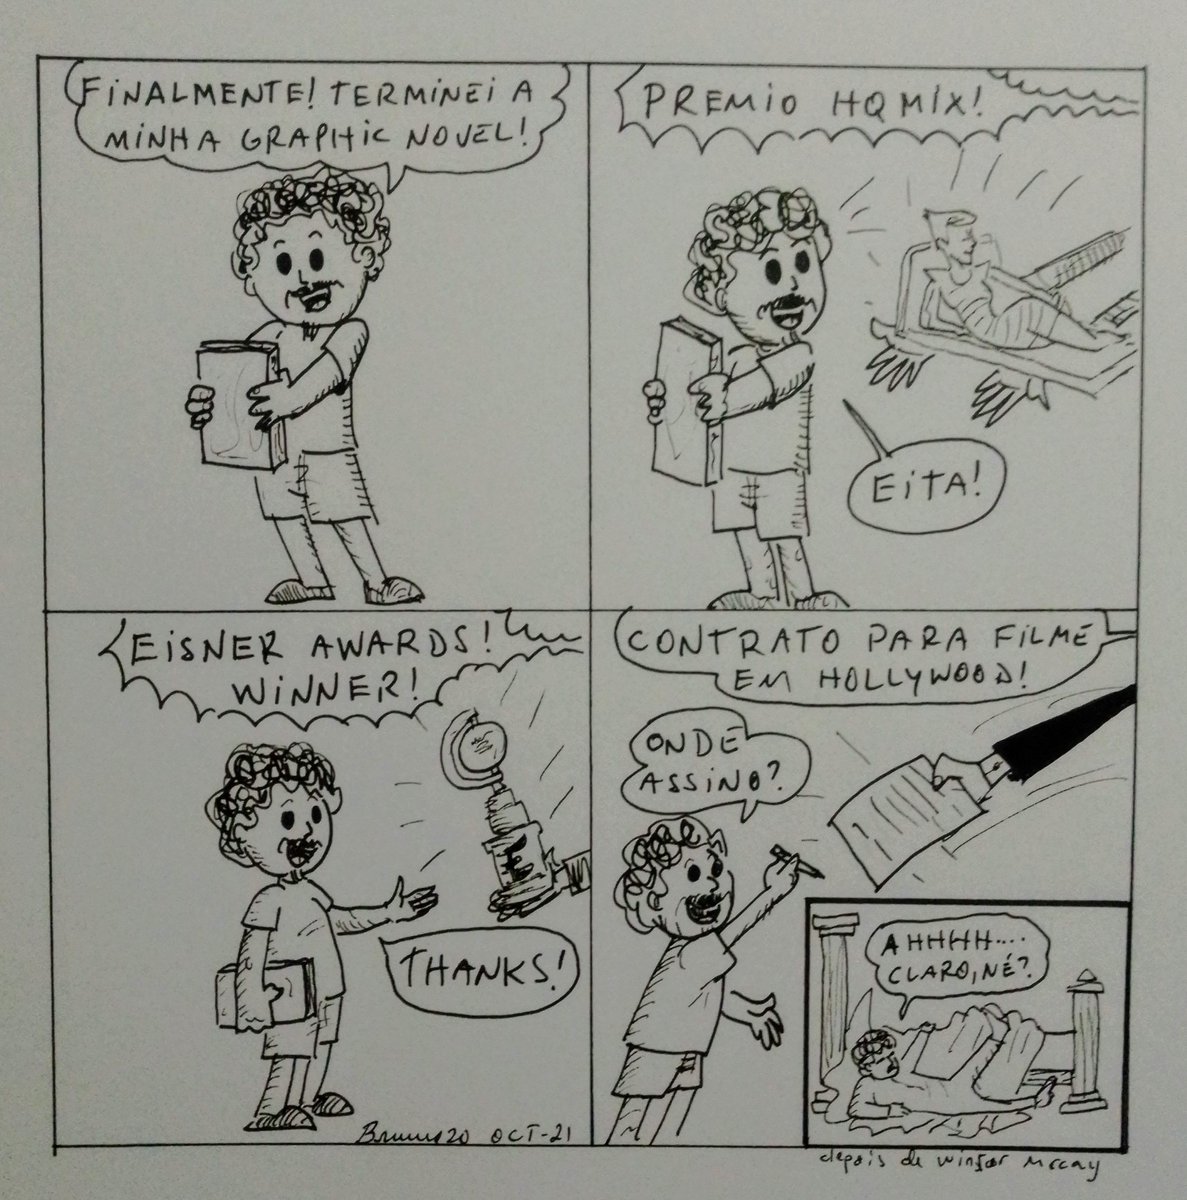 FINALMENTE! TERMINEI A
MINHA GRAPHIC NOVEL!
PREMIO HQMIX!
EITA!
EISNER AWARDS!
WINNER!
THANKS!
CONTRATO PARA FILME
EM HOLLYWOOD!
ONDE
ASSINO?
AHHHH....
CLARO, NÉ?
OCT-21
depois de Winsor Mccay